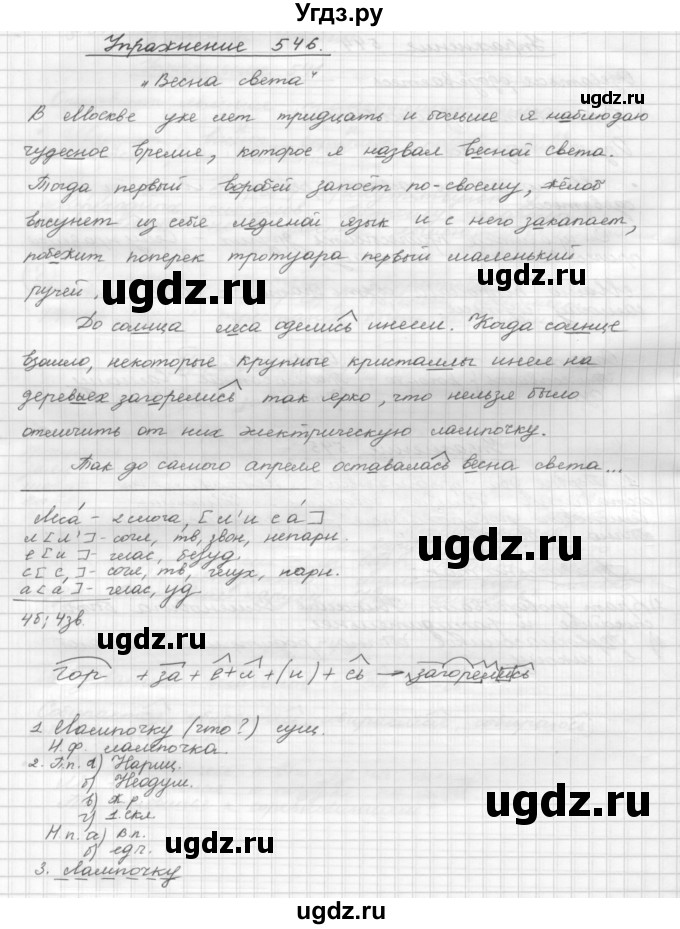 Угдз.ру
Упражнение 546.
„Весна света"
В Москве уже лет тридцать и больше я наблюдаю
чудесное время, которое я назвал весной света.
Тогда первый воробей запоёт по-своему, жёлоб
высунет из себя ледяной язык и с него закапает,
побежит поперек тротуара первый маленький
ручей.
До солнца леса оделись инеем. Когда солнце
взошло, некоторые крупные кристаллы инея на
деревьех загорелись так ярко, что нельзя было
отличить от них электрическую лампочку.
Так до самого апреля оставалась весна света...
Леса́ - 2 слога, [л'иса́]
л [л'] - согл, тв, звон, непарн.
е [и] - глас, безуд.
с [с] - согл, тв, глух, парн.
а [а́] - глас, уд
4б; 4зв.
гор + за + е + л + (и) + сь → загорелись
1. Лампочку (что?) сущ.
Н.ф. лампочка.
2. П.п. а) Нариц.
б) Неодуш.
в) ж.р.
г) 1 скл
Н.п. а) В.п.
б) ед.ч.
3. Лампочку
ugdz.ru
ugdz.ru
ugdz.ru
ugdz.ru
ugdz.ru
ugdz.ru
ugdz.ru
ugdz.ru
ugdz.ru
ugdz.ru
ugdz.ru
ugdz.ru